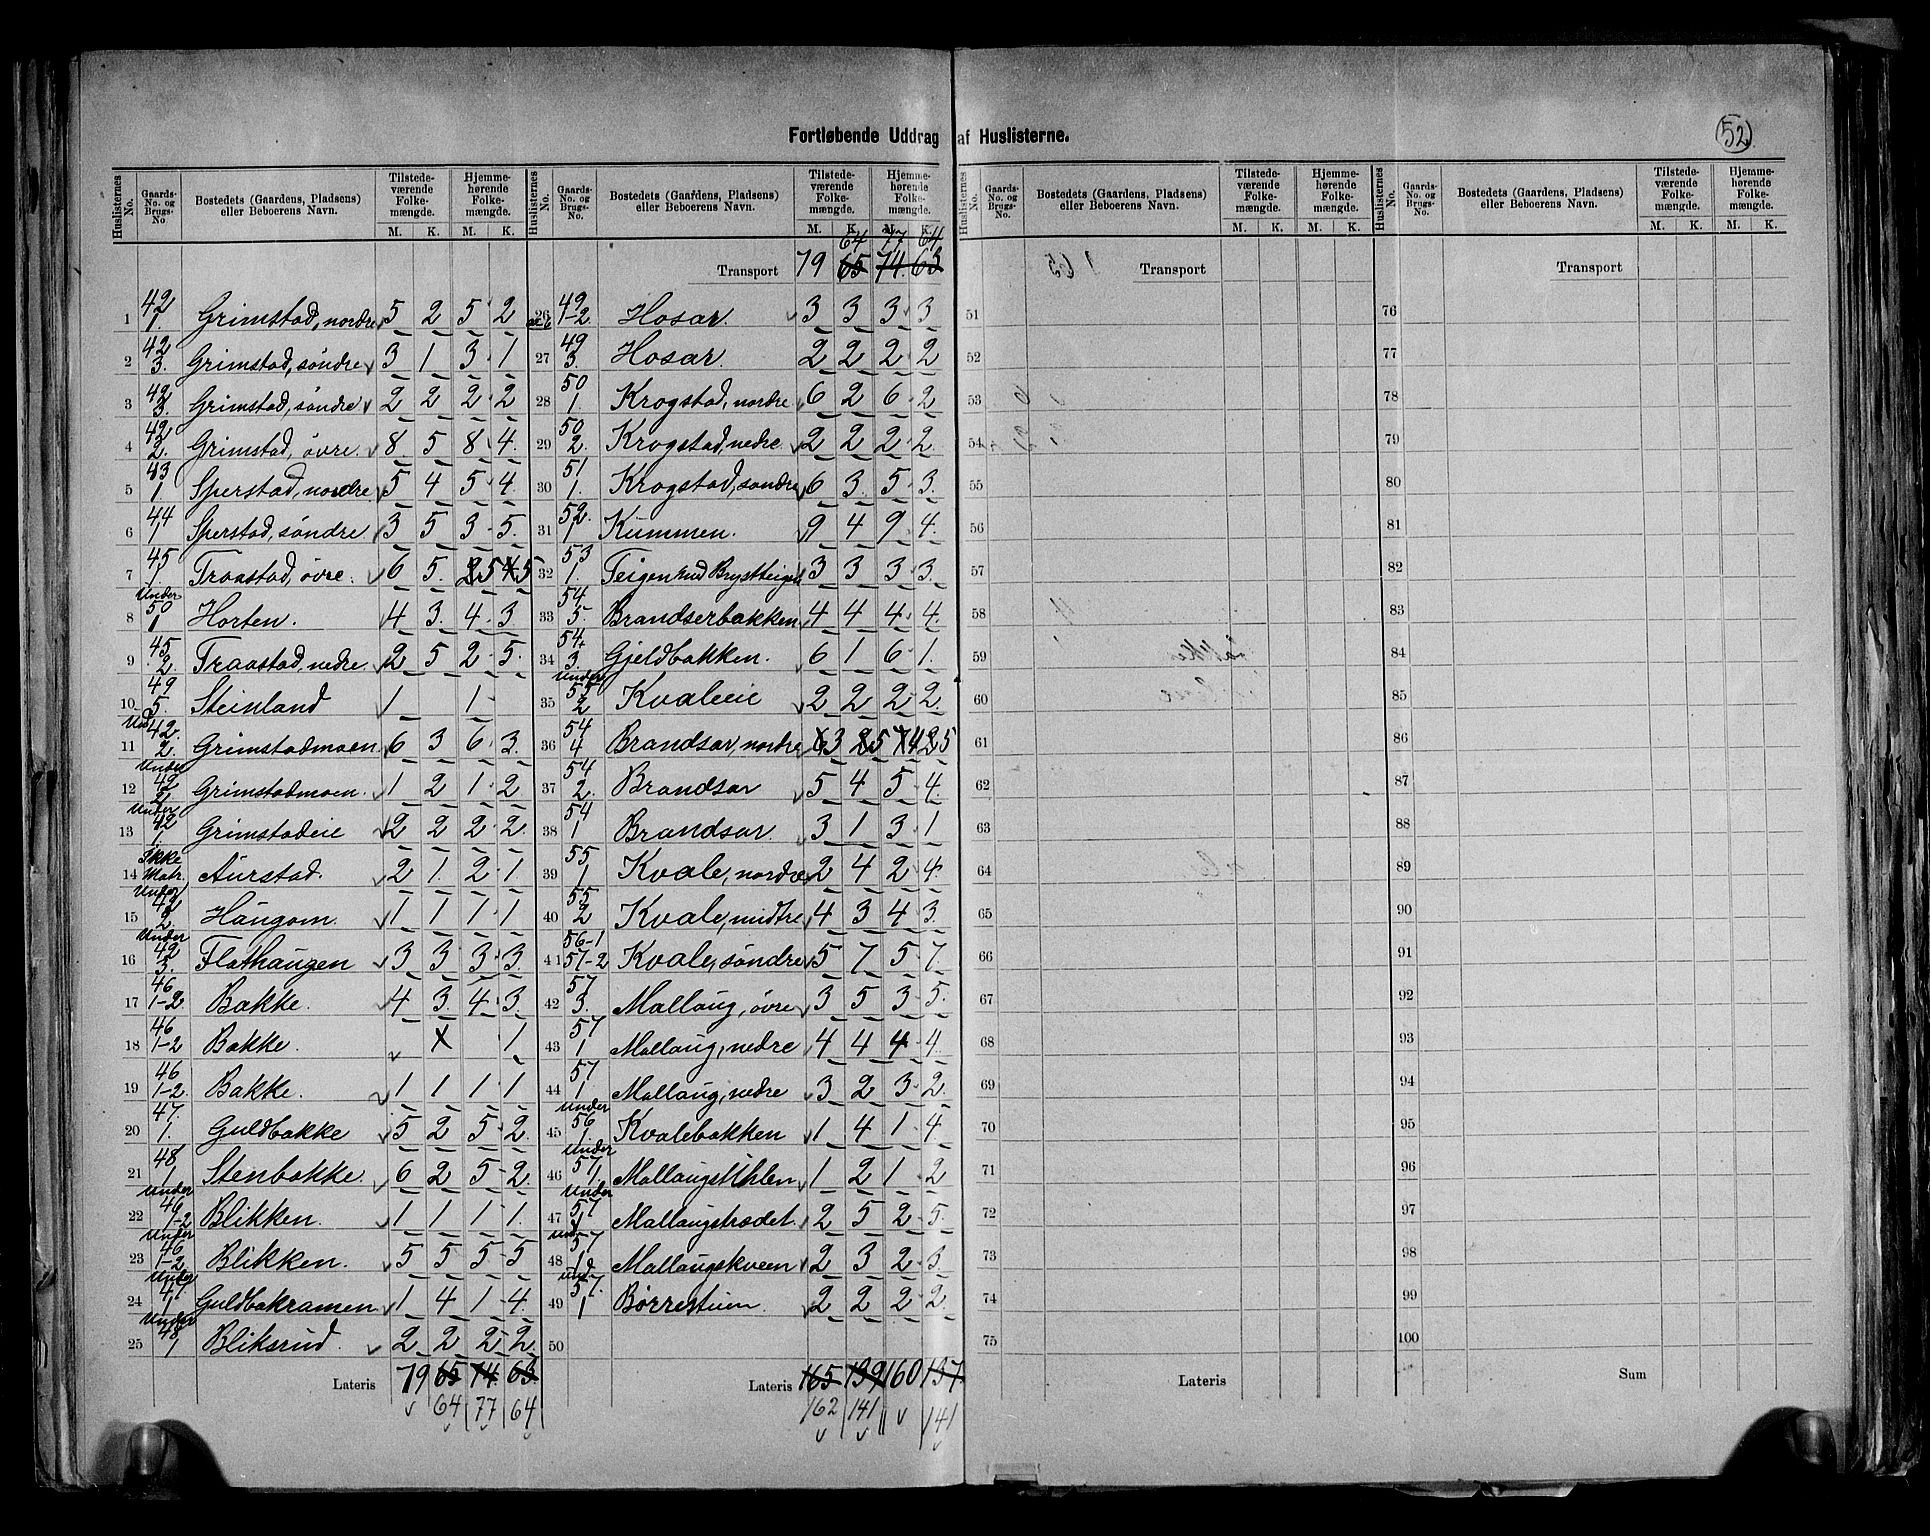 Fortløbende Uddrag af Huslisterne.
52
Huslisternes No. Gaards-No. og Brugs-No Bostedets (Gaardens, Pladsens) eller Beboerens Navn. Tilstedeværende Folkemængde. M. K. Hjemmehørende Folkemængde. M. K.
1 42 1. Grimstad, nordre 5 2 5 2
2 42 3. Grimstad, søndre 3 1 3 1
3 42 3. Grimstad, søndre 2 2 2 2
4 42 2. Grimstad, øvre. 8. 5 8 4.
5 43 1 Sperstad, nordre 5 4 5 4.
6 44 1 Sperstad, søndre 3 5 3 5.
7 45 1. Traastad, øvre. 6 5. 5 5
8 Under 50 1 Horten. 4 3. 4 3
9 45 2. Traastad, nedre. 2 5 2 5.
10 49 5. Steinland 1 1
11 Und 42. 2. Grimstadmoen. 6 3 6 3.
12 Under 42 2 Grimstadmoen. 1 2 1 2
13 Under 42 1. Grimstadeie 2 2 2 2.
14 Ikke Matr. Aurstad. 2 1. 2 1
15 Under 42 2 Haugom. 1 1 1 1
16 Under 42 3. Flathaugen 3 3 3 3.
17 46 1-2 Bakke. 4 3 4 3
18 46 1-2 Bakke. x 1
19 46 1-2. Bakke. 1 1 1 1
20 47. 1. Guldbakke 5 2 5 2.
21 48 1 Stenbakke. 6 2 5 2.
22 Under 46 1-2 Blikken. 1 1 1 1.
23 Under 46 1-2 Blikken. 5 5 5 5
24 Under 47. 1 Guldbakramen 1 4 1 4.
25 Under 48 1 Bliksrud. 2 2 2 2.
Lateris 79 65 74. 63
64 77 64
Huslisternes No. Gaards-No. og Brugs-No. Bostedets (Gaardens, Pladsens) eller Beboerens Navn. Tilstedeværende Folkemængde. M. K. Hjemmehørende Folkemængde. M. K.
64 77 64
Transport 79 65 74. 63
26 49 1-2. Hosar. 3 3 3 3
27 49 3. Hosar. 2 2 2 2
28 50 1. Krogstad, nordre 6 2 6 2
29 50 2. Krogstad, nedre 2 2 2 2.
30 51 1. Krogstad, søndre 6 3. 5 3.
31 52. 1 Kummen. 9 4 9 4.
32 53 1. Teigen 3 3 3 3.
33 54 5. Brandserbakken 4 4 4 4.
34 54 3. Gjeldbakken. 6 1 6 1.
35 Under 55 2 Kvaleeie 2 2 2 2
36 54 4 Brandsar, nordre 3 5 4 5
37 54 2. Brandsar 5 4 5 4.
38 54 1 Brandsar. 3 1 3 1
39 55 1 Kvale, nordre 2 4 2 4.
40 55 2 Kvale, midtre 4 3 4 3.
41 56-1 57-2 Kvale, søndre 5 7 5 7.
42 57 3. Mallaug, øvre 3 5 3 5.
43 57 1 Mallaug, nedre 4 4 4 4.
44 57 1 Mallaug, nedre 3 2 3 2
45 Under 56 1. Kvalebakken 1 4 1 4.
46 Under 57 1. 1 2 1 2
47 Under 57 Mallaugstrædet. 2 5 2 5.
48 Und 57 Mallaugskveen 2 3 2 3.
49 Und. 57. 1 Børrestuen. 2 2 2 2.
50
Lateris 165 139 160 137.
162 141 141
Huslisternes No. Gaards-No. og Brugs-No. Bostedets (Gaardens, Pladsens) eller Beboerens Navn. Tilstedeværende Folkemængde. M. K. Hjemmehørende Folkemængde. M. K.
Transport
51
52
53
54
55
56
57
58
59
60
61
62
63
64
65
66
67
68
69
70
71
72
73
74
75
Lateris
Huslisternes No. Gaards-No. og Brugs-No. Bostedets (Gaardens, Pladsens) eller Beboerens Navn. Tilstedeværende Folkemængde. M. K. Hjemmehørende Folkemængde. M. K.
Transport
76
77
78
79
80
81
82
83
84
85
86
87
88
89
90
91
92
93
94
95
96
97
98
99
100
Sum